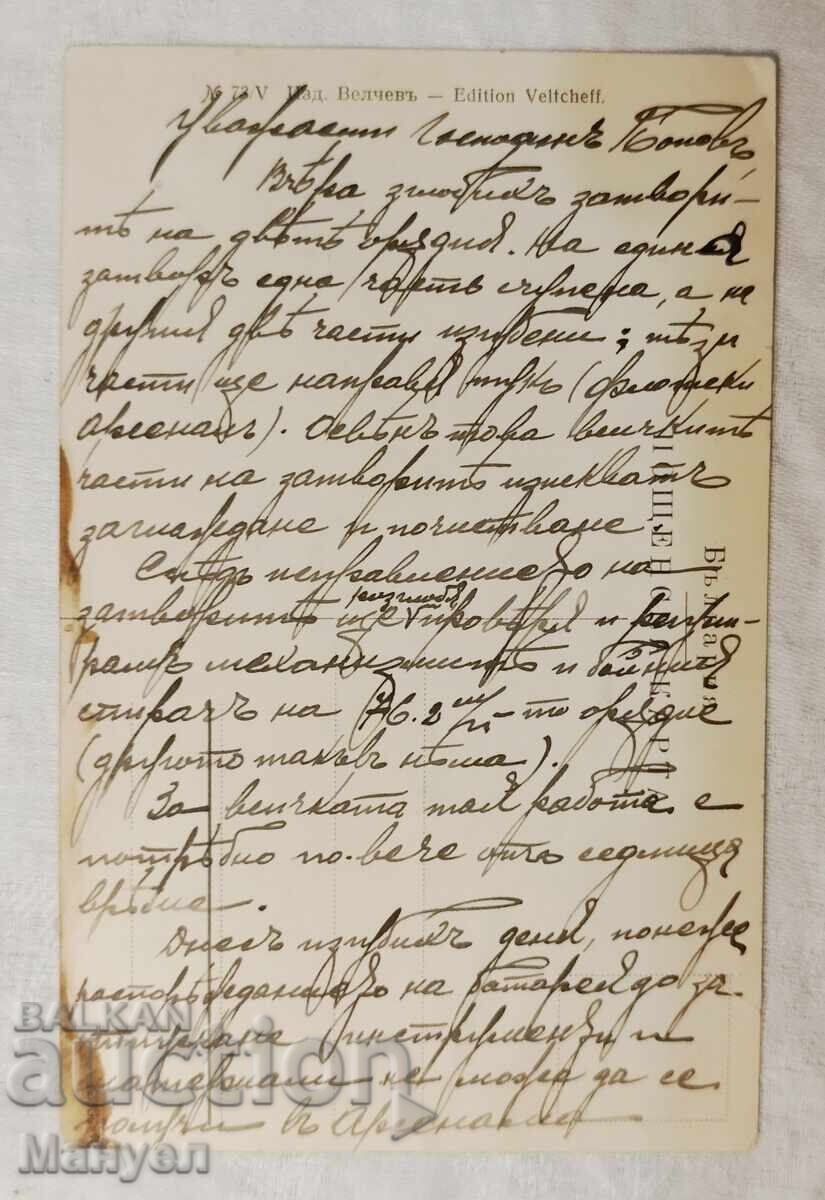 № 73/V Изд. Велчевъ — Edition Veltcheff.
Уважаеми Господинъ Поповъ,
Вчера сглобихъ затвори-
тѣ на двѣтѣ орѫдия. На единия
затворъ една часть счупена, а на
другия двѣ части изгубени; тѣзи
части ще направя тукъ (флотски
арсеналъ). Освѣнъ това всичкитѣ
части на затворитѣ изискватъ
заглаждане и почистване.
Слѣдъ исправлението на
затворитѣ ще разглобя провѣря и регули-
рамъ механизмитѣ и бойния
стирачъ на 76.2 m/m-то орѫдие
(другото такъв нѣма).
За всичката тая работа е
потрѣбно по-вече отъ седмица
врѣме.
Днесъ изгубихъ деня, понеже
распорѣждането на батарея до за-
инструменти и
материали не можа да се
получи въ Арсенала
България
ПОЩЕНСКА КАРТА
BALKAN
auction
Мануел